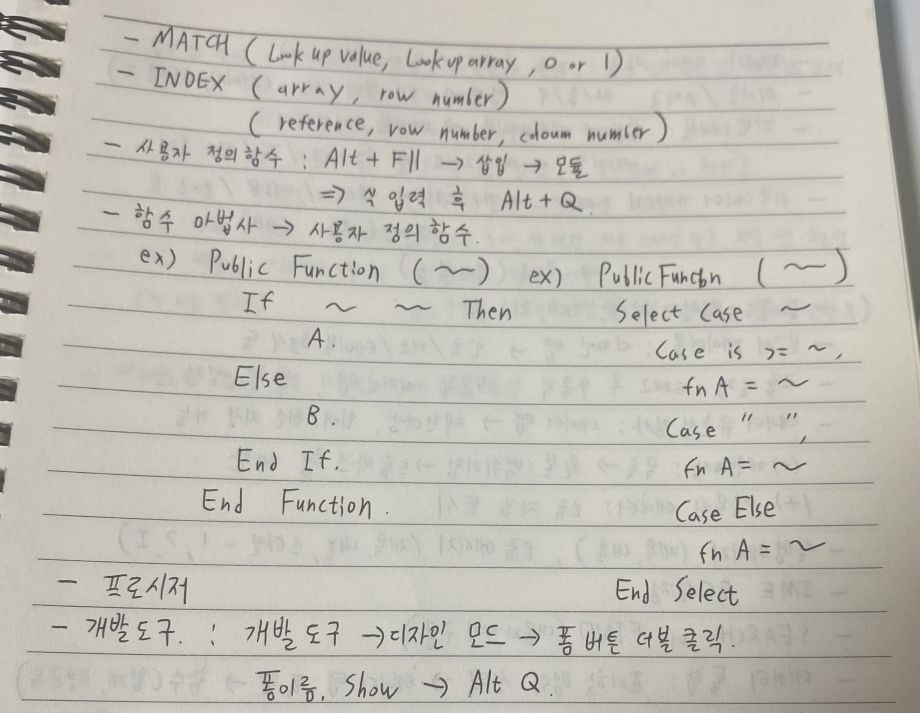 - MATCH ( Look up value, Look up array, 0 or 1)
- INDEX ( array, row number )
( reference, row number, coloum number )
- 사용자 정의 함수 : Alt + F11 → 삽입 → 모듈
=> 식 입력 후 Alt + Q.
- 함수 마법사 → 사용자 정의 함수.
ex) Public Function ( ~ ) ex) Public Functn ( ~ )
If ~ ~ Then Select Case ~
A. Case is >= ~,
Else fn A = ~
B. Case " ",
End If. fn A = ~
End Function. Case Else
fn A = ~
- 프로시저 End Select
- 개발도구. : 개발 도구 → 디자인 모드 → 폼 버튼 더블 클릭.
폼이름. Show → Alt Q.